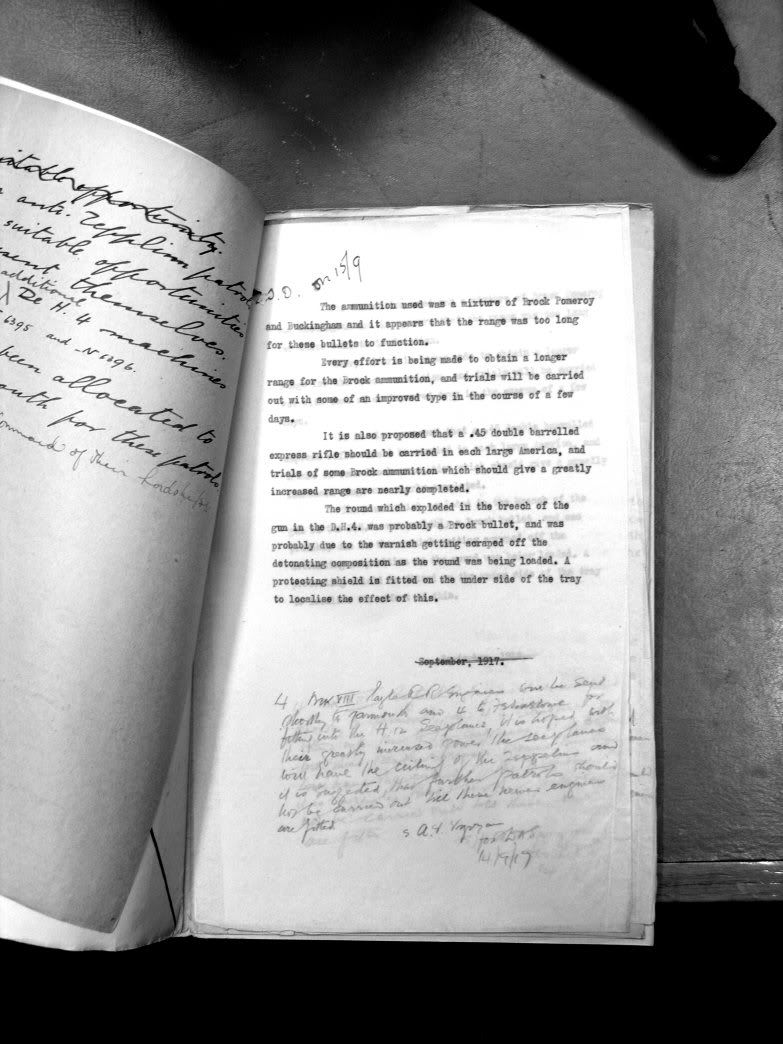 suitable opportunity.
anti-Zeppelin patrol
suitable opportunities
present themselves.
additional
De H. 4 machines
6395 and N6396.
been allocated to
mouth for these patrols.
Command of their Lordships,
S.O. on 15/9
The ammunition used was a mixture of Brock Pomeroy
and Buckingham and it appears that the range was too long
for these bullets to function.
Every effort is being made to obtain a longer
range for the Brock ammunition, and trials will be carried
out with some of an improved type in the course of a few
days.
It is also proposed that a .45 double barrelled
express rifle should be carried in each large America, and
trials of some Brock ammunition which should give a greatly
increased range are nearly completed.
The round which exploded in the breech of the
gun in the D.H.4. was probably a Brock bullet, and was
probably due to the varnish getting scraped off the
detonating composition as the round was being loaded. A
protecting shield is fitted on the under side of the tray
to localise the effect of this.
September, 1917.
4 VIII Eagle R.R Engines will be sent
shortly to Yarmouth and 4 to Felixstowe for
fitting into the H.12 Seaplanes. It is hoped with
their greatly increased power the seaplanes
will have the ceiling of the Zeppelins and
it is suggested that further patrols should
not be carried out till these newer engines
are fitted.
for DAS
14/9/17